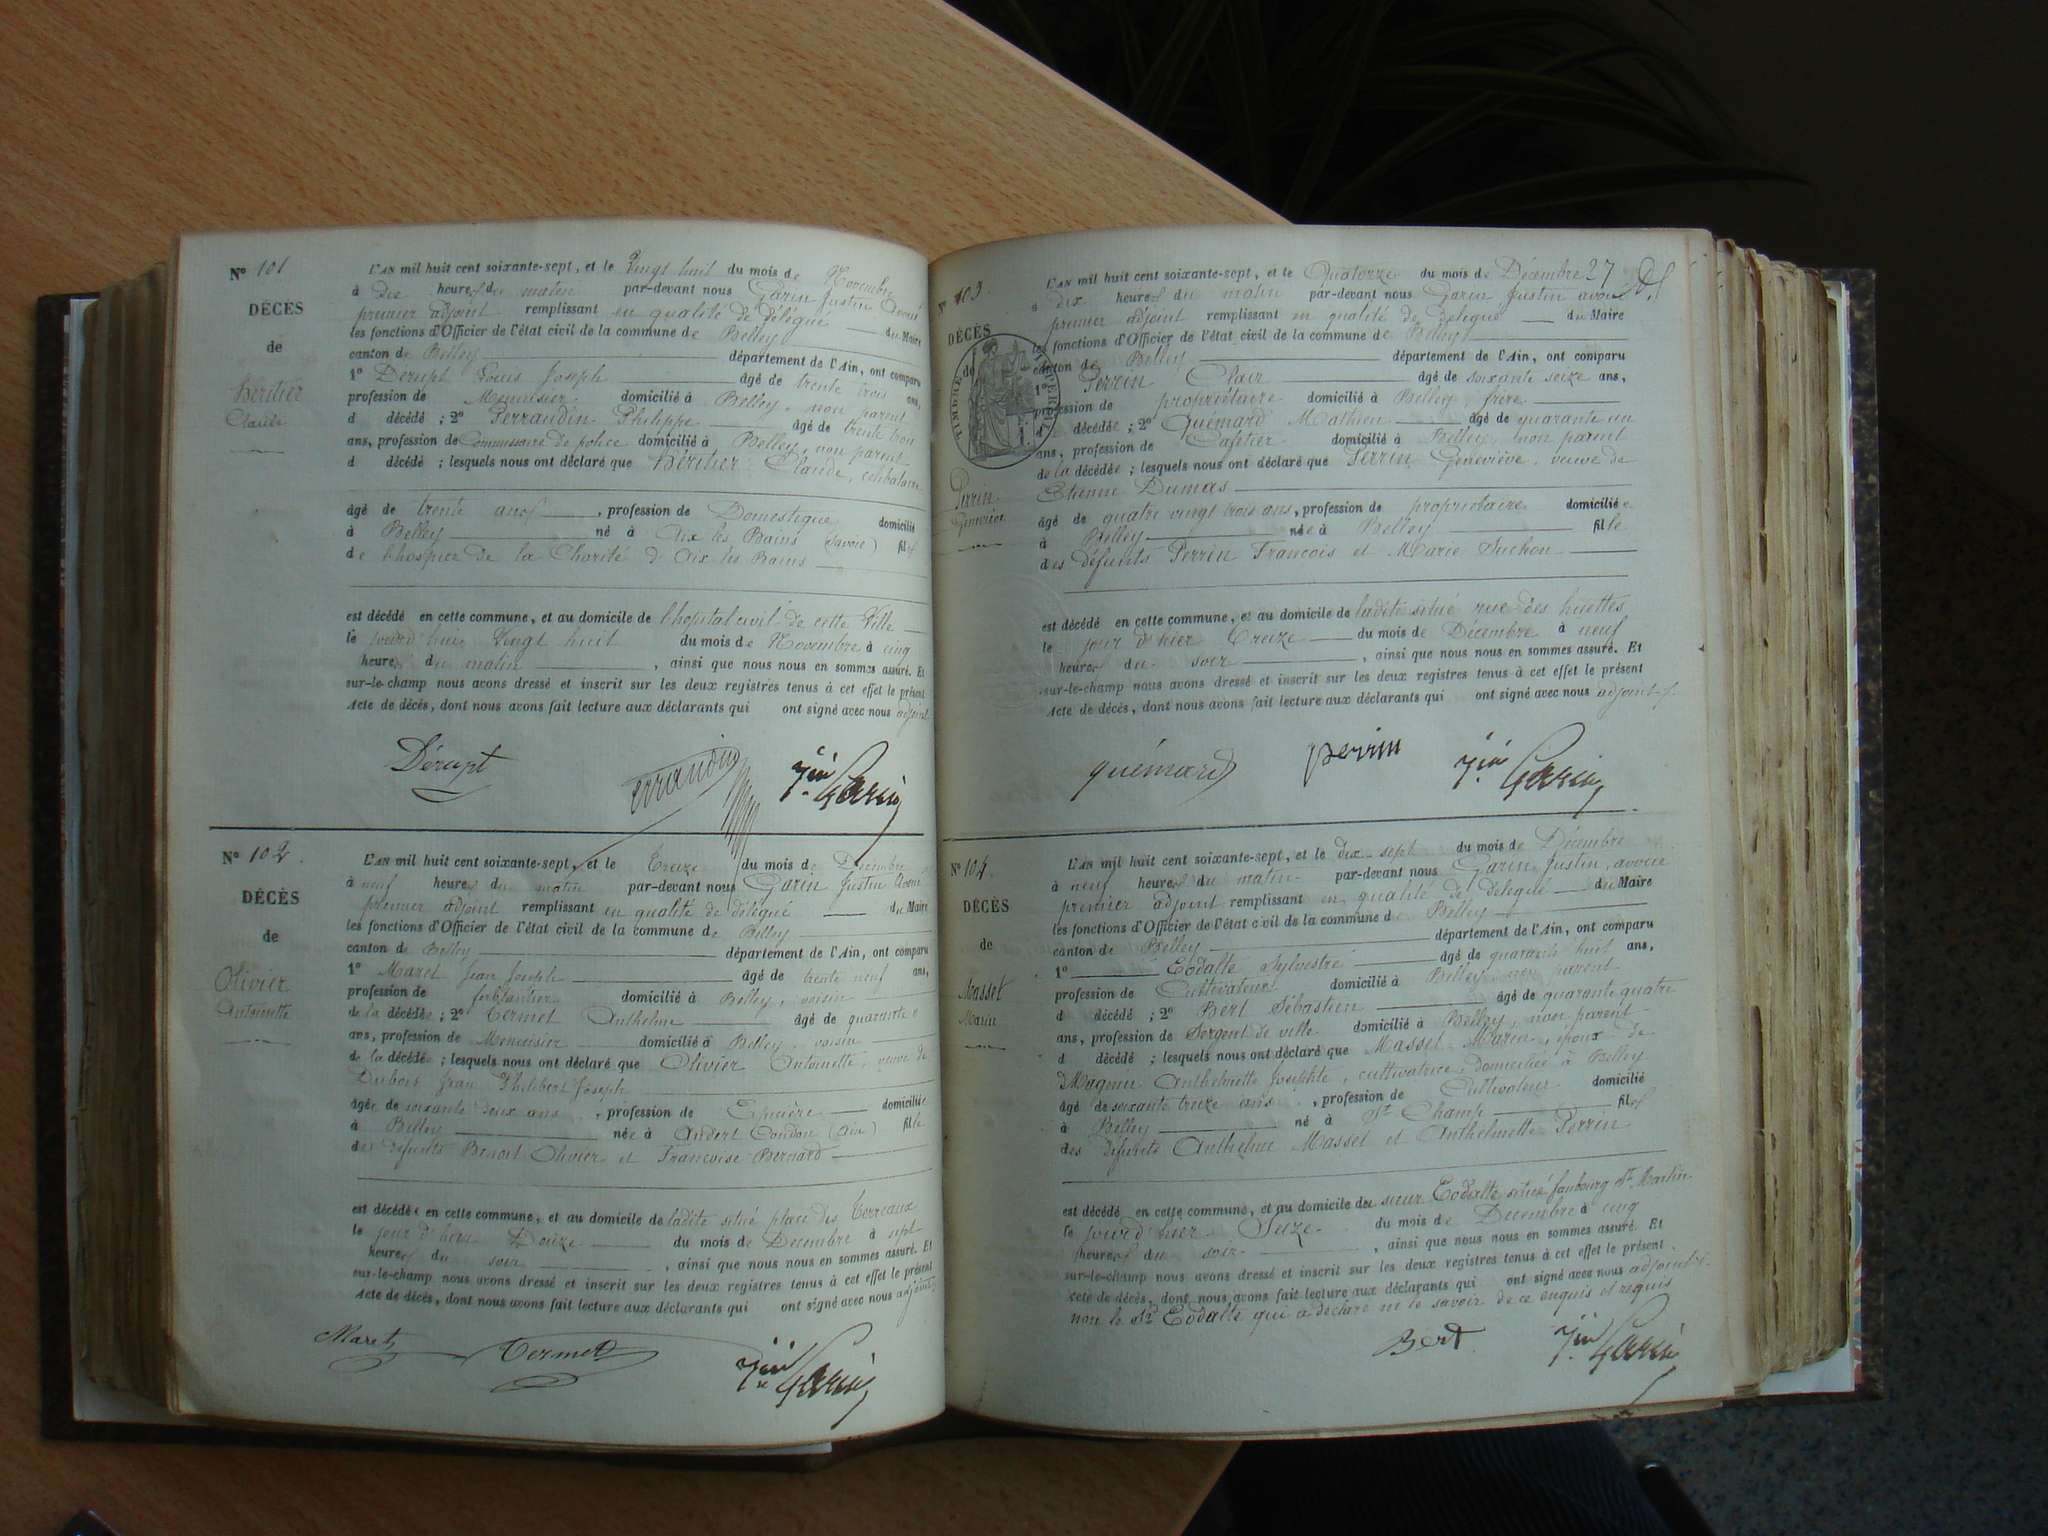 N° 101
DÉCÈS
de
Héritier
Claude
L'AN mil huit cent soixante-sept, et le Vingt huit du mois de Novembre
à dix heures du matin par-devant nous Garin Justin Avoué
premier adjoint remplissant en qualité de délégué du Maire
les fonctions d'Officier de l'état civil de la commune de Belley
canton de Belley département de l'Ain, ont comparu
1° Derupt Louis Joseph âgé de trente trois ans,
profession de Menuisier domicilié à Belley, non parent
d décédé ; 2° Perraudin Philippe âgé de trente trois
ans, profession de Commissaire de police domicilié à Belley, non parent
d décédé ; lesquels nous ont déclaré que Héritier Claude, célibataire
âgé de trente ans, profession de Domestique domicilié
à Belley né à Aix les Bains (Savoie) fils
de l'hospice de la Charité d'Aix les Bains
est décédé en cette commune, et au domicile de l'hopital civil de cette Ville
le jourd'hui Vingt huit du mois de Novembre à cinq
heures du matin, ainsi que nous nous en sommes assuré. Et
sur-le-champ nous avons dressé et inscrit sur les deux registres tenus à cet effet le présent
Acte de décès, dont nous avons fait lecture aux déclarants qui ont signé avec nous adjoint
Dérupt Perraudin Jin Garin
N° 102.
DÉCÈS
de
Olivier
Antoinette
L'AN mil huit cent soixante-sept, et le Treize du mois de Décembre
à neuf heures du matin par-devant nous Garin Justin Avoué
premier adjoint remplissant en qualité de délégué du Maire
les fonctions d'Officier de l'état civil de la commune de Belley
canton de Belley département de l'Ain, ont comparu
1° Maret Jean Joseph âgé de trente neuf ans,
profession de ferblantier domicilié à Belley, voisin
de la décédée ; 2° Termet Anthelme âgé de quarante
ans, profession de Menuisier domicilié à Belley, voisin
de la décédée ; lesquels nous ont déclaré que Olivier Antoinette, veuve de
Dubois Jean Philibert Joseph
âgée de soixante deux ans, profession de Epicière domiciliée
à Belley née à Andert Condon (Ain) fille
des défunts Benoit Olivier et Françoise Bernard
est décédée en cette commune, et au domicile de ladite situé place des Terreaux
le jour d'hier Douze du mois de Décembre à sept
heures du soir, ainsi que nous nous en sommes assuré. Et
sur-le-champ nous avons dressé et inscrit sur les deux registres tenus à cet effet le présent
Acte de décès, dont nous avons fait lecture aux déclarants qui ont signé avec nous adjoint
Maret Termet Jin Garin
27
N° 103.
DÉCÈS
de
TIMBRE IMPÉRIAL
Perrin
Geneviève
L'AN mil huit cent soixante-sept, et le Quatorze du mois de Décembre
à dix heures du matin par-devant nous Garin Justin avoué
premier adjoint remplissant en qualité de délégué du Maire
les fonctions d'Officier de l'état civil de la commune de Belley
canton de Belley département de l'Ain, ont comparu
1° Perrin Clair âgé de soixante seize ans,
profession de propriétaire domicilié à Belley, frère
d décédée ; 2° Quémard Mathieu âgé de quarante un
ans, profession de Cafetier domicilié à Belley, non parent
de la décédée ; lesquels nous ont déclaré que Perrin Geneviève, veuve de
Etienne Dumas
âgé de quatre vingt trois ans, profession de propriétaire domiciliée
à Belley née à Belley fille
des défunts Perrin François et Marie Suchon
est décédé en cette commune, et au domicile de ladite situé rue des huettes
le jour d'hier Treize du mois de Décembre à neuf
heures du soir, ainsi que nous nous en sommes assuré. Et
sur-le-champ nous avons dressé et inscrit sur les deux registres tenus à cet effet le présent
Acte de décès, dont nous avons fait lecture aux déclarants qui ont signé avec nous adjoint
quémard perrin Jin Garin
N° 104.
DÉCÈS
de
Masset
Marin
L'AN mil huit cent soixante-sept, et le dix-sept du mois de Décembre
à neuf heures du matin par-devant nous Garin Justin, avoué
premier adjoint remplissant en qualité de délégué du Maire
les fonctions d'Officier de l'état civil de la commune de Belley
canton de Belley département de l'Ain, ont comparu
1° Eodalte Sylvestre âgé de quarante huit ans,
profession de Cultivateur domicilié à Belley non parent
d décédé ; 2° Bert Sébastien âgé de quarante quatre
ans, profession de Sergent de ville domicilié à Belley, non parent
d décédé ; lesquels nous ont déclaré que Masset Marin, époux de
Magnin Anthelmette Josephte, cultivatrice, domiciliée à Belley
âgé de soixante treize ans, profession de Cultivateur domicilié
à Belley né à St Champ fils
des défunts Anthelme Masset et Anthelmette Perrin
est décédé en cette commune, et au domicile du sieur Eodalte situé faubourg St Martin
le jour d'hier Seize du mois de Décembre à cinq
heures du soir, ainsi que nous nous en sommes assuré. Et
sur-le-champ nous avons dressé et inscrit sur les deux registres tenus à cet effet le présent
Acte de décès, dont nous avons fait lecture aux déclarants qui ont signé avec nous adjoint
non le Sr Eodalte qui a déclaré ne le savoir de ce enquis et requis
Bert Jin Garin